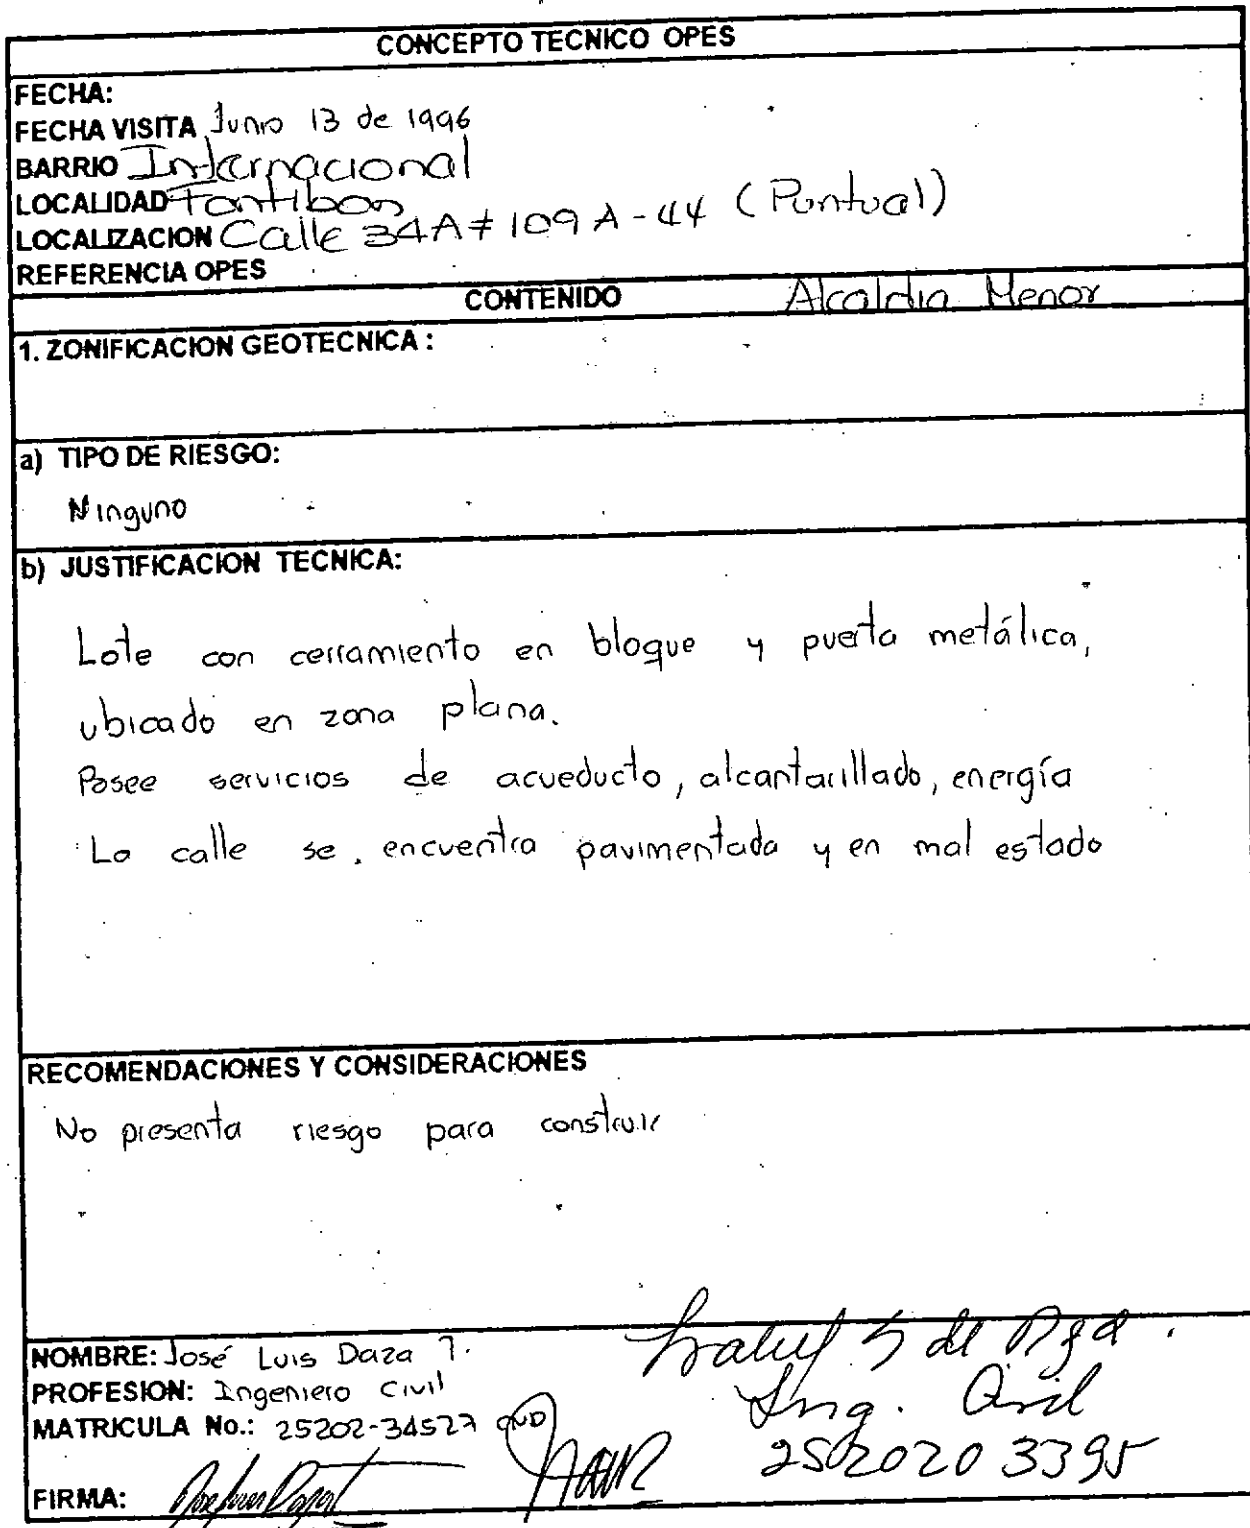 CONCEPTO TECNICO OPES
FECHA:
FECHA VISITA Junio 13 de 1996
BARRIO Internacional
LOCALIDAD Fontibon
LOCALIZACION Calle 34A # 109 A - 44 (Puntual)
REFERENCIA OPES
CONTENIDO Alcaldia Menor
1. ZONIFICACION GEOTECNICA :
a) TIPO DE RIESGO:
Ninguno
b) JUSTIFICACION TECNICA:
Lote con cerramiento en bloque y puerta metálica,
ubicado en zona plana.
Posee servicios de acueducto, alcantarillado, energía
La calle se encuentra pavimentada y en mal estado
RECOMENDACIONES Y CONSIDERACIONES
No presenta riesgo para construir
NOMBRE: José Luis Daza T.
PROFESION: Ingeniero Civil
MATRICULA No.: 25202-34527 CND
FIRMA:
Ing. Civil
2502020 3395